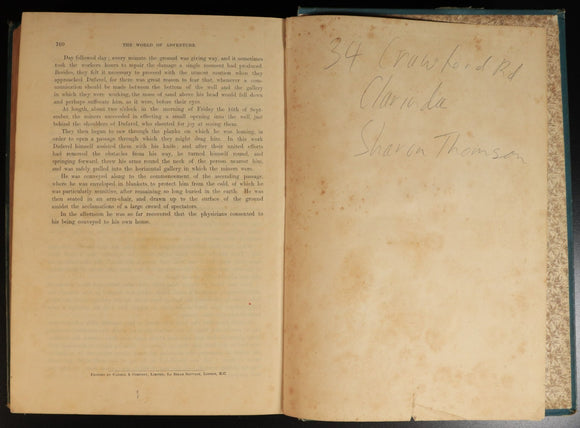 760 THE WORLD OF ADVENTURE.
Day followed day; every minute the ground was giving way, and it sometimes
took the workers hours to repair the damage a single moment had produced.
Besides, they felt it necessary to proceed with the utmost caution when they
approached Dufavel, for there was great reason to fear that, whenever a com-
munication should be made between the bottom of the well and the gallery
in which they were working, the mass of sand above his head would fall down
and perhaps suffocate him, as it were, before their eyes.
At length, about two o'clock in the morning of Friday the 16th of Sept-
ember, the miners succeeded in effecting a small opening into the well, just
behind the shoulders of Dufavel, who shouted for joy at seeing them.
They then began to saw through the planks on which he was leaning, in
order to open a passage through which they might drag him. In this work
Dufavel himself assisted them with his knife; and after their united efforts
had removed the obstacles from his way, he turned himself round, and
springing forward threw his arms round the neck of the person nearest him,
and was safely pulled into the horizontal gallery in which the miners were.
He was conveyed along to the commencement of the ascending passage,
where he was enveloped in blankets to protect him from the cold, of which he
was particularly sensitive, after remaining so long buried in the earth. He was
then seated in an arm-chair, and drawn up to the surface of the ground
amidst the acclamations of a large crowd of spectators.
In the afternoon he was so far recovered that the physicians consented to
his being conveyed to his own home.
PRINTED BY CASSELL & COMPANY, LIMITED, LA BELLE SAUVAGE, LONDON, E.C.
34 Crawford Rd
Clarinda
Sharon Thomson